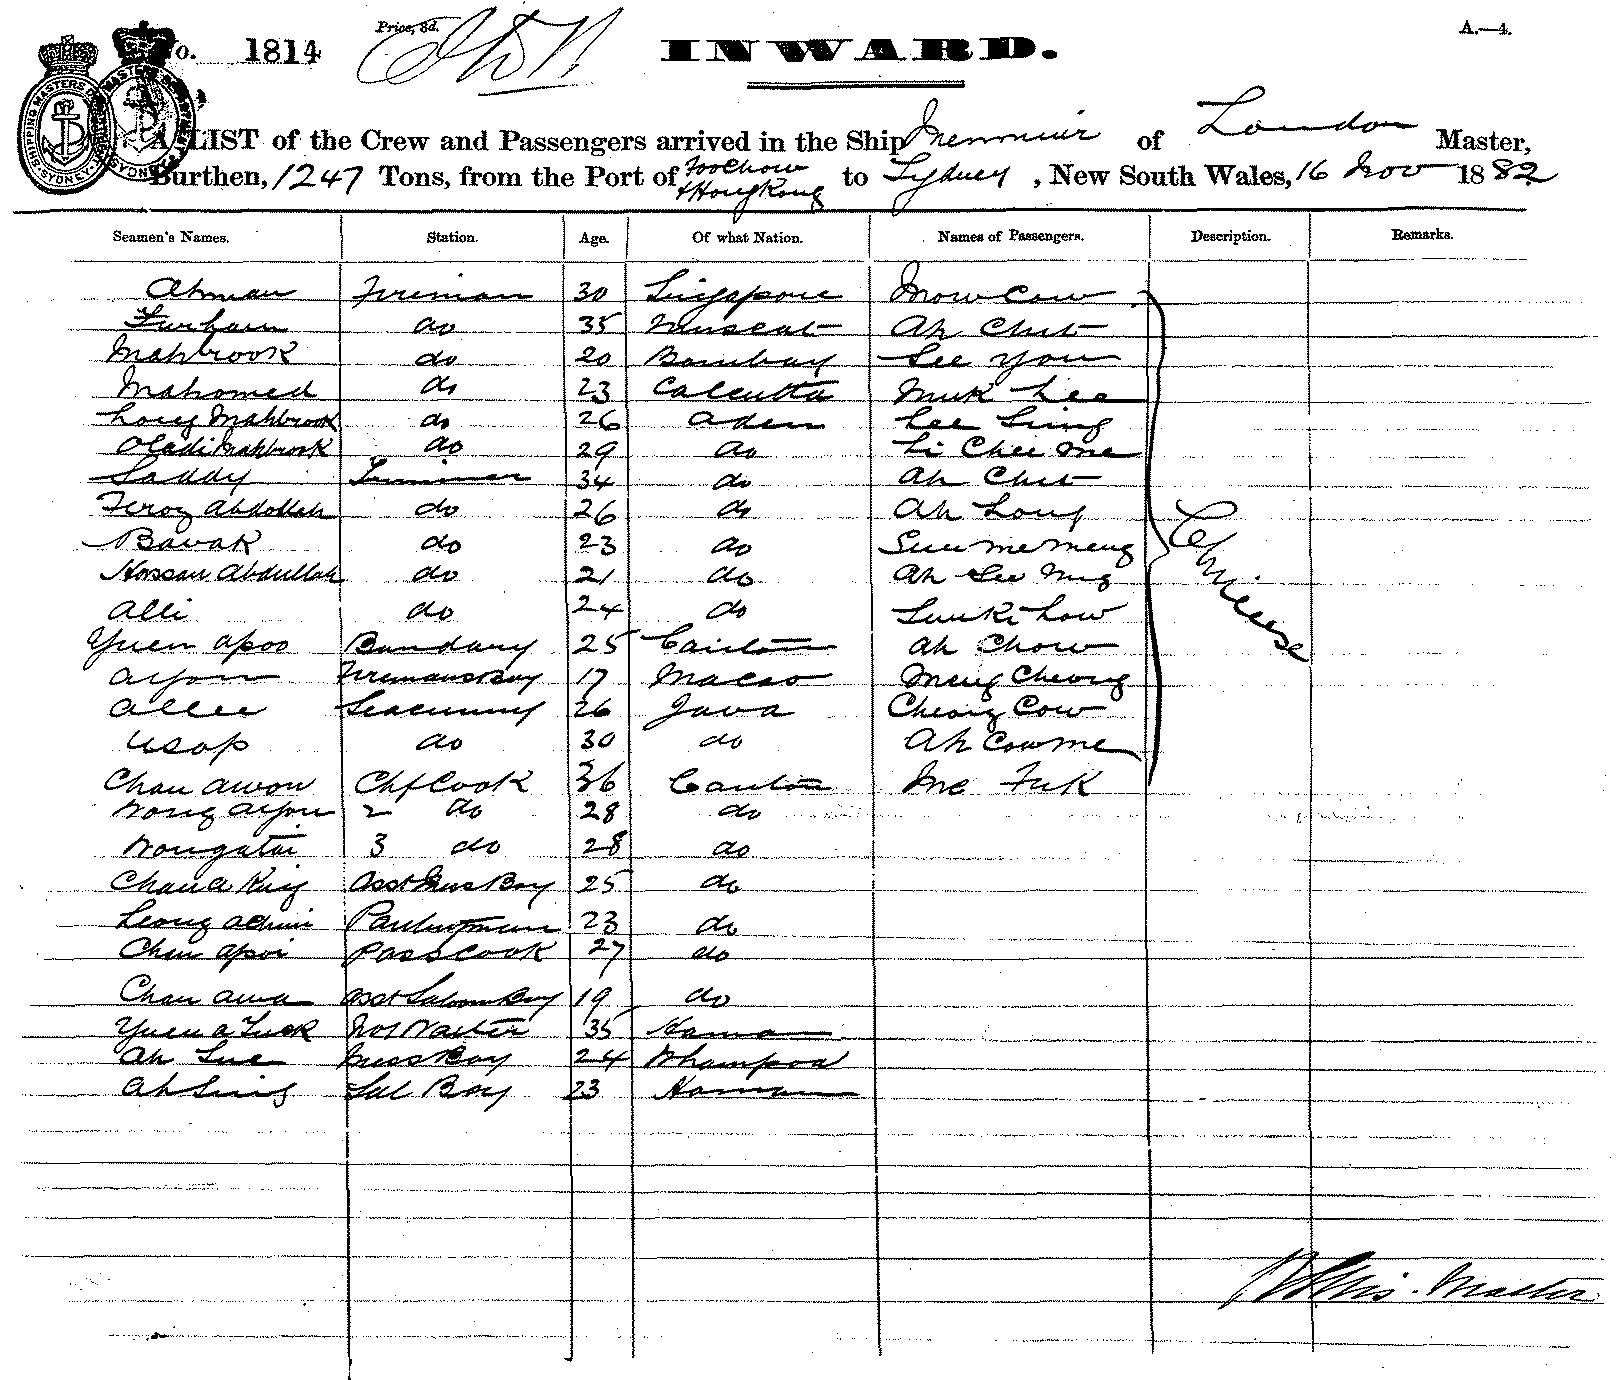 No. 1814 Price, 3d. INWARD. A.—4.
A LIST of the Crew and Passengers arrived in the Ship Menmuir of London Master,
Burthen, 1247 Tons, from the Port of Foochow & Hong Kong to Sydney, New South Wales, 16 Nov 1882
Seamen's Names. Station. Age. Of what Nation. Names of Passengers. Description. Remarks.
Ahman Fireman 30 Singapore Mow Cow
Furham do 35 Muscat Ah Chut
Mahbrook do 20 Bombay See You
Mahomed do 23 Calcutta Muk Lee
Mahbrook do 26 Aden Lee Sing
Oladi Mahbrook do 29 do Li Chee Me
Saddy Trimmer 34 do Ah Chut
Feroz Abdollah do 26 do Ah Long
Bavak do 23 do Sun me meng
Hassan Abdullah do 21 do Ah See
Alli do 24 do Sun Ki Low
Yuen Apoo Bandary 25 Canton Ah Chow
Ayon Firemans Boy 17 Macao Meng Cheong
Allee Seacunny 26 Java Cheong Cow
Usop do 30 do Ah Cow me
Chan Awon Chf Cook 36 Canton Me Fuk
Wong Ayon 2 do 28 do
Wongatai 3 do 28 do
Chan a King Asst Mess Boy 25 do
Leong Achim Pantryman 23 do
Chun Apoi Pass Cook 27 do
Chan Awa Asst Saloon Boy 19 do
Yuen a Tuck 35
Ah Sue Mess Boy 24 Whampoa
Ah Sing Sal Boy 23
Chinese
Ellis. Master
SHIPPING MASTERS SYDNEY